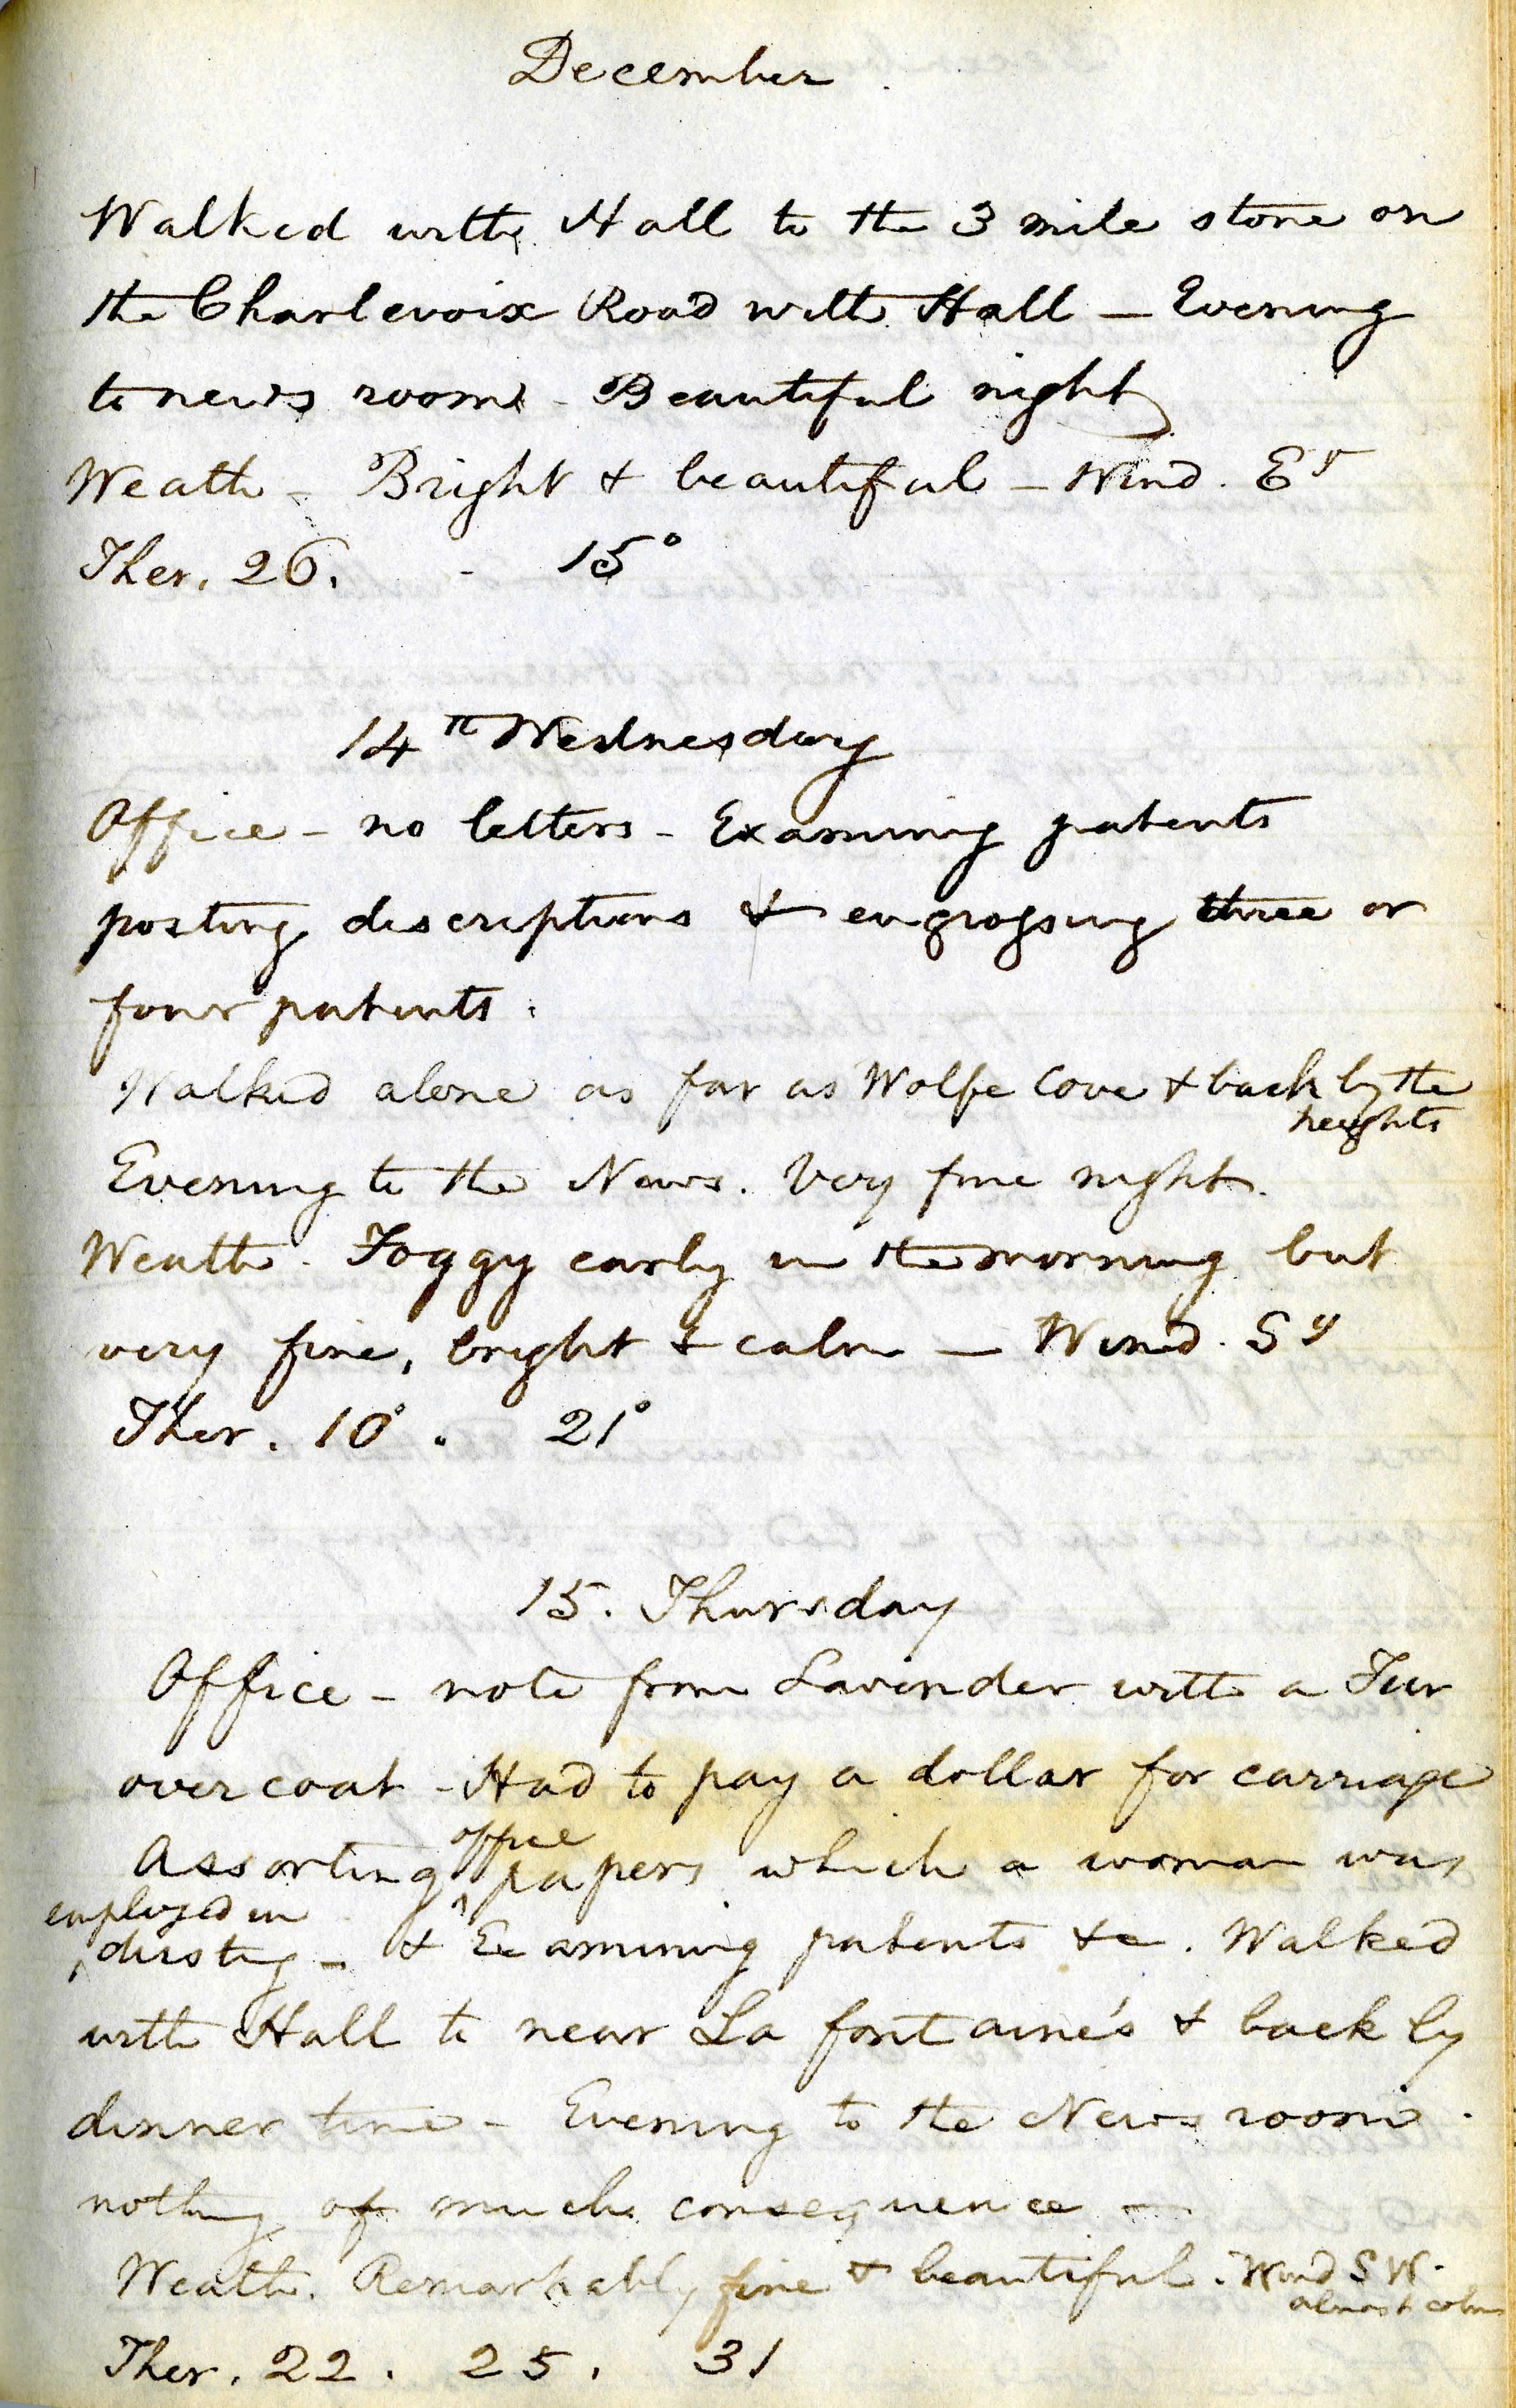 December
Walked with Hall to the 3 mile stone on
the Charlevoix Road with Hall — Evening
to news room - Beautiful night
Weath - Bright & beautiful - Wind. Ey
Ther. 26. - 15°
14th Wednesday
Office - no letters - Examining patents
posting descriptions & engrossing three or
four patents.
Walked alone as far as Wolfe Cove & back by the
heights
Evening to the News. Very fine night.
Weath. Foggy early in the morning but
very fine, bright & calm — Wind. Sy
Ther. 10°. 21°
15. Thursday
Office - note from Lavender with a Fur
over coat - Had to pay a dollar for carriage
office
Assorting ^ papers which a woman was
employed in
^ dusting - & Examining patents &c. Walked
with Hall to near La fontaine's & back by
dinner time - Evening to the News room.
nothing of much consequence —
Weath. Remarkably fine & beautiful. Wind S W.
almost calm
Ther. 22. 25. 31